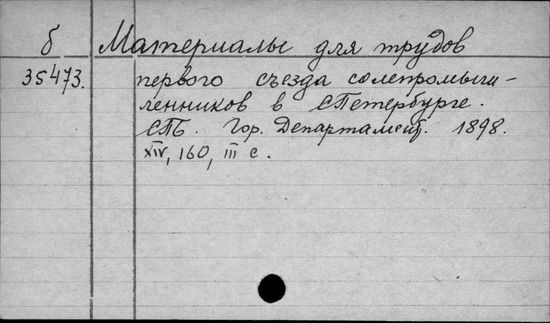 б Материалы для трудов
35473. первого съезда солепромыш-
ленников в СПетербурге.
СПБ. Гор. Департамент. 1898.
XIV, 160, III с.